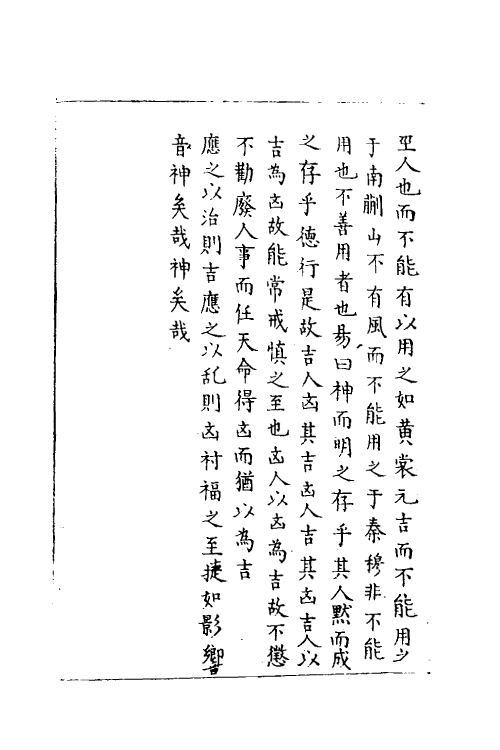 巫人也而不能有以用之如黄裳元吉而不能用之
于南蒯山不有風而不能用之于秦穆非不能
用也不善用者也昜曰神而明之存乎其人黙而成
之存乎德行是故吉人凶其吉凶人吉其凶吉人以
吉為凶故能常戒慎之至也凶人以凶為吉故不懲
不勸廢人事而任天命得凶而猶以為吉
應之以治則吉應之以乱則凶禍福之至捷如影響
音神矣哉神矣哉